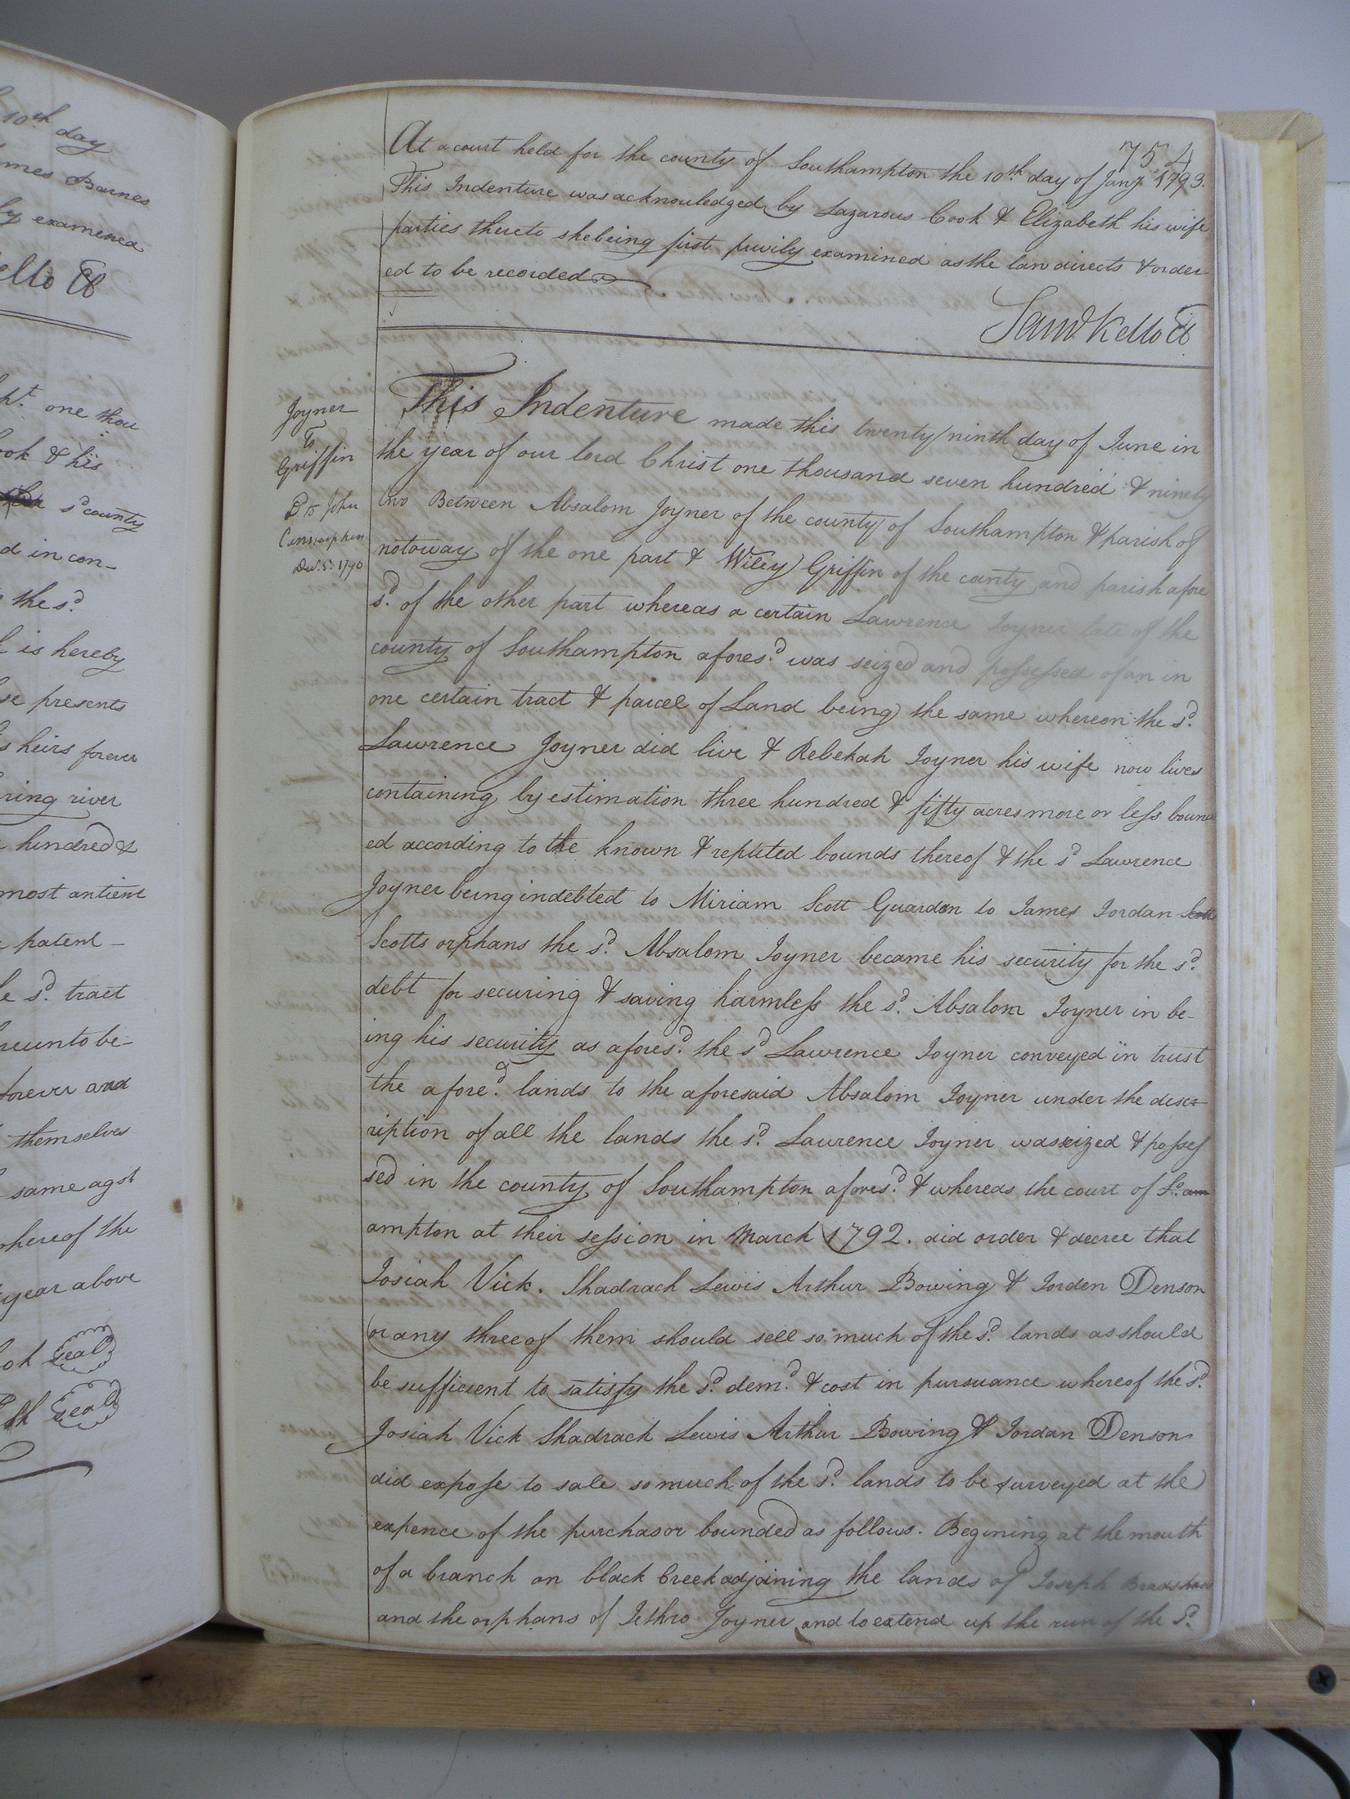 10th day
mes Barnes
by examined
ello Cl
pt. one thou
ook & his
sd. county
d in con-
the sd.
is hereby
se presents
s heirs forever
ring river
hundred &
most antient
patent
e sd. tract
reunto be-
forever and
themselves
same agst
whereof the
year above
ok Seal
eth Seal
754
At a court held for the county of Southampton the 10th. day of Jany. 1793.
This Indenture was acknowledged by Lazarous Cook & Elizabeth his wife
parties thereto she being first privily examined as the law directs & order
ed to be recorded
Saml Kello Cl
Joyner
To
Griffin
Dd. To John
Decr. 5. 1790
This Indenture made this twenty ninth day of June in
the year of our lord Christ one thousand seven hundred & ninety
two Between Absalom Joyner of the county of Southampton & parish of
notoway of the one part & Wiley Griffin of the canty and parish afore
sd. of the other part whereas a certain Lawrence Joyner late of the
county of Southampton afores.d was seized and possessed of an in
one certain tract & parcel of Land being the same whereon the sd.
Lawrence Joyner did live & Rebekah Joyner his wife now lives
containing by estimation three hundred & fifty acres more or less bound
ed according to the known & reputed bounds thereof & the sd Lawrence
Joyner being indebted to Miriam Scott Guardon to James Jordan Scott
Scotts orphans the sd. Absalom Joyner became his security for the sd.
debt for securing & saving harmless the sd. Absalom Joyner in be-
ing his security as afores.d the sd Lawrence Joyner conveyed in trust
the afore.d lands to the aforesaid Absalom Joyner under the desc-
ription of all the lands the sd. Lawrence Joyner waseized & posses
sed in the county of Southampton afores.d & whereas the court of So. am
ampton at their session in March 1792. did order & decree that
Josiah Vick. Shadrach Lewis Arthur Bowing & Jorden Denson
or any three of them should sell so much of the sd. lands as should
be sufficient to satisfy the sd. dem.d & cost in pursuance whereof the sd.
Josiah Vick Shadrack Lewis Arthur Bowing & Jordan Denson
did expose to sale so much of the sd. lands to be surveyed at the
expence of the purchasor bounded as follows. Begining at the mouth
of a branch on black Creek adjoining the lands of Joseph Bradshaw
and the orphans of Jethro Joyner and to extend up the run of the sd.